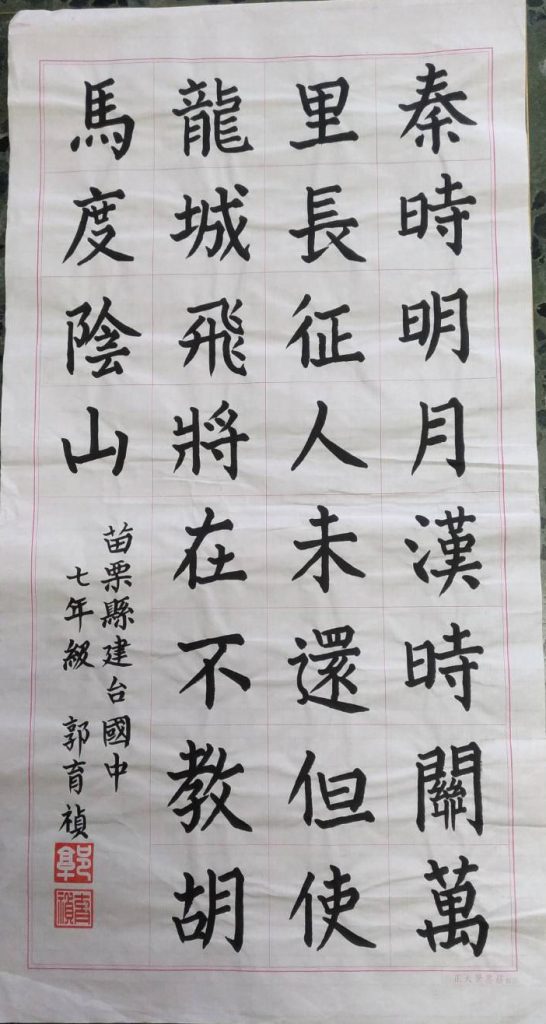 秦時明月漢時關萬
里長征人未還但使
龍城飛將在不教胡
馬度陰山
苗栗縣建台國中
七年級 郭育禎